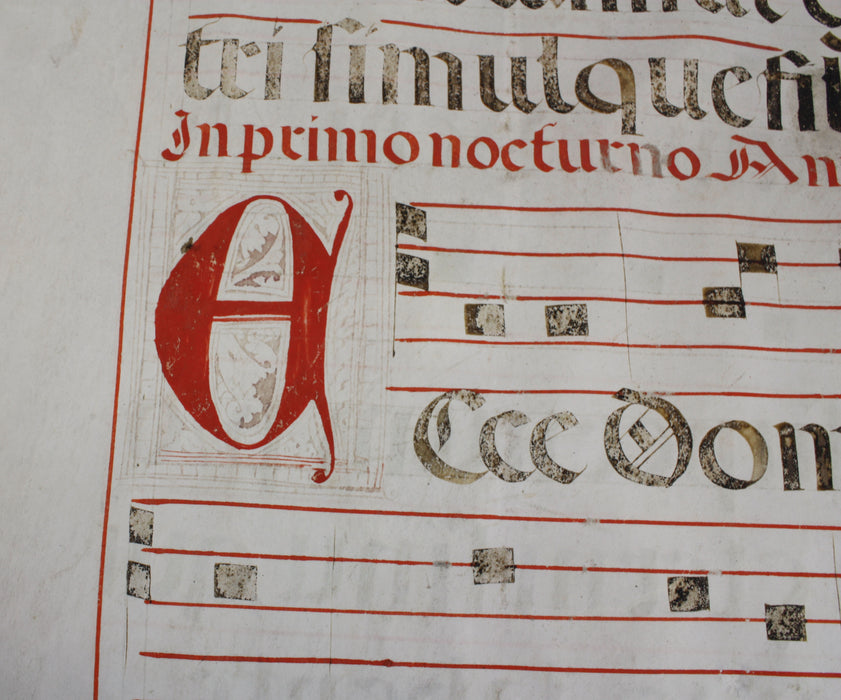 tri simulque fili
In primo nocturno An
E Cce Dom